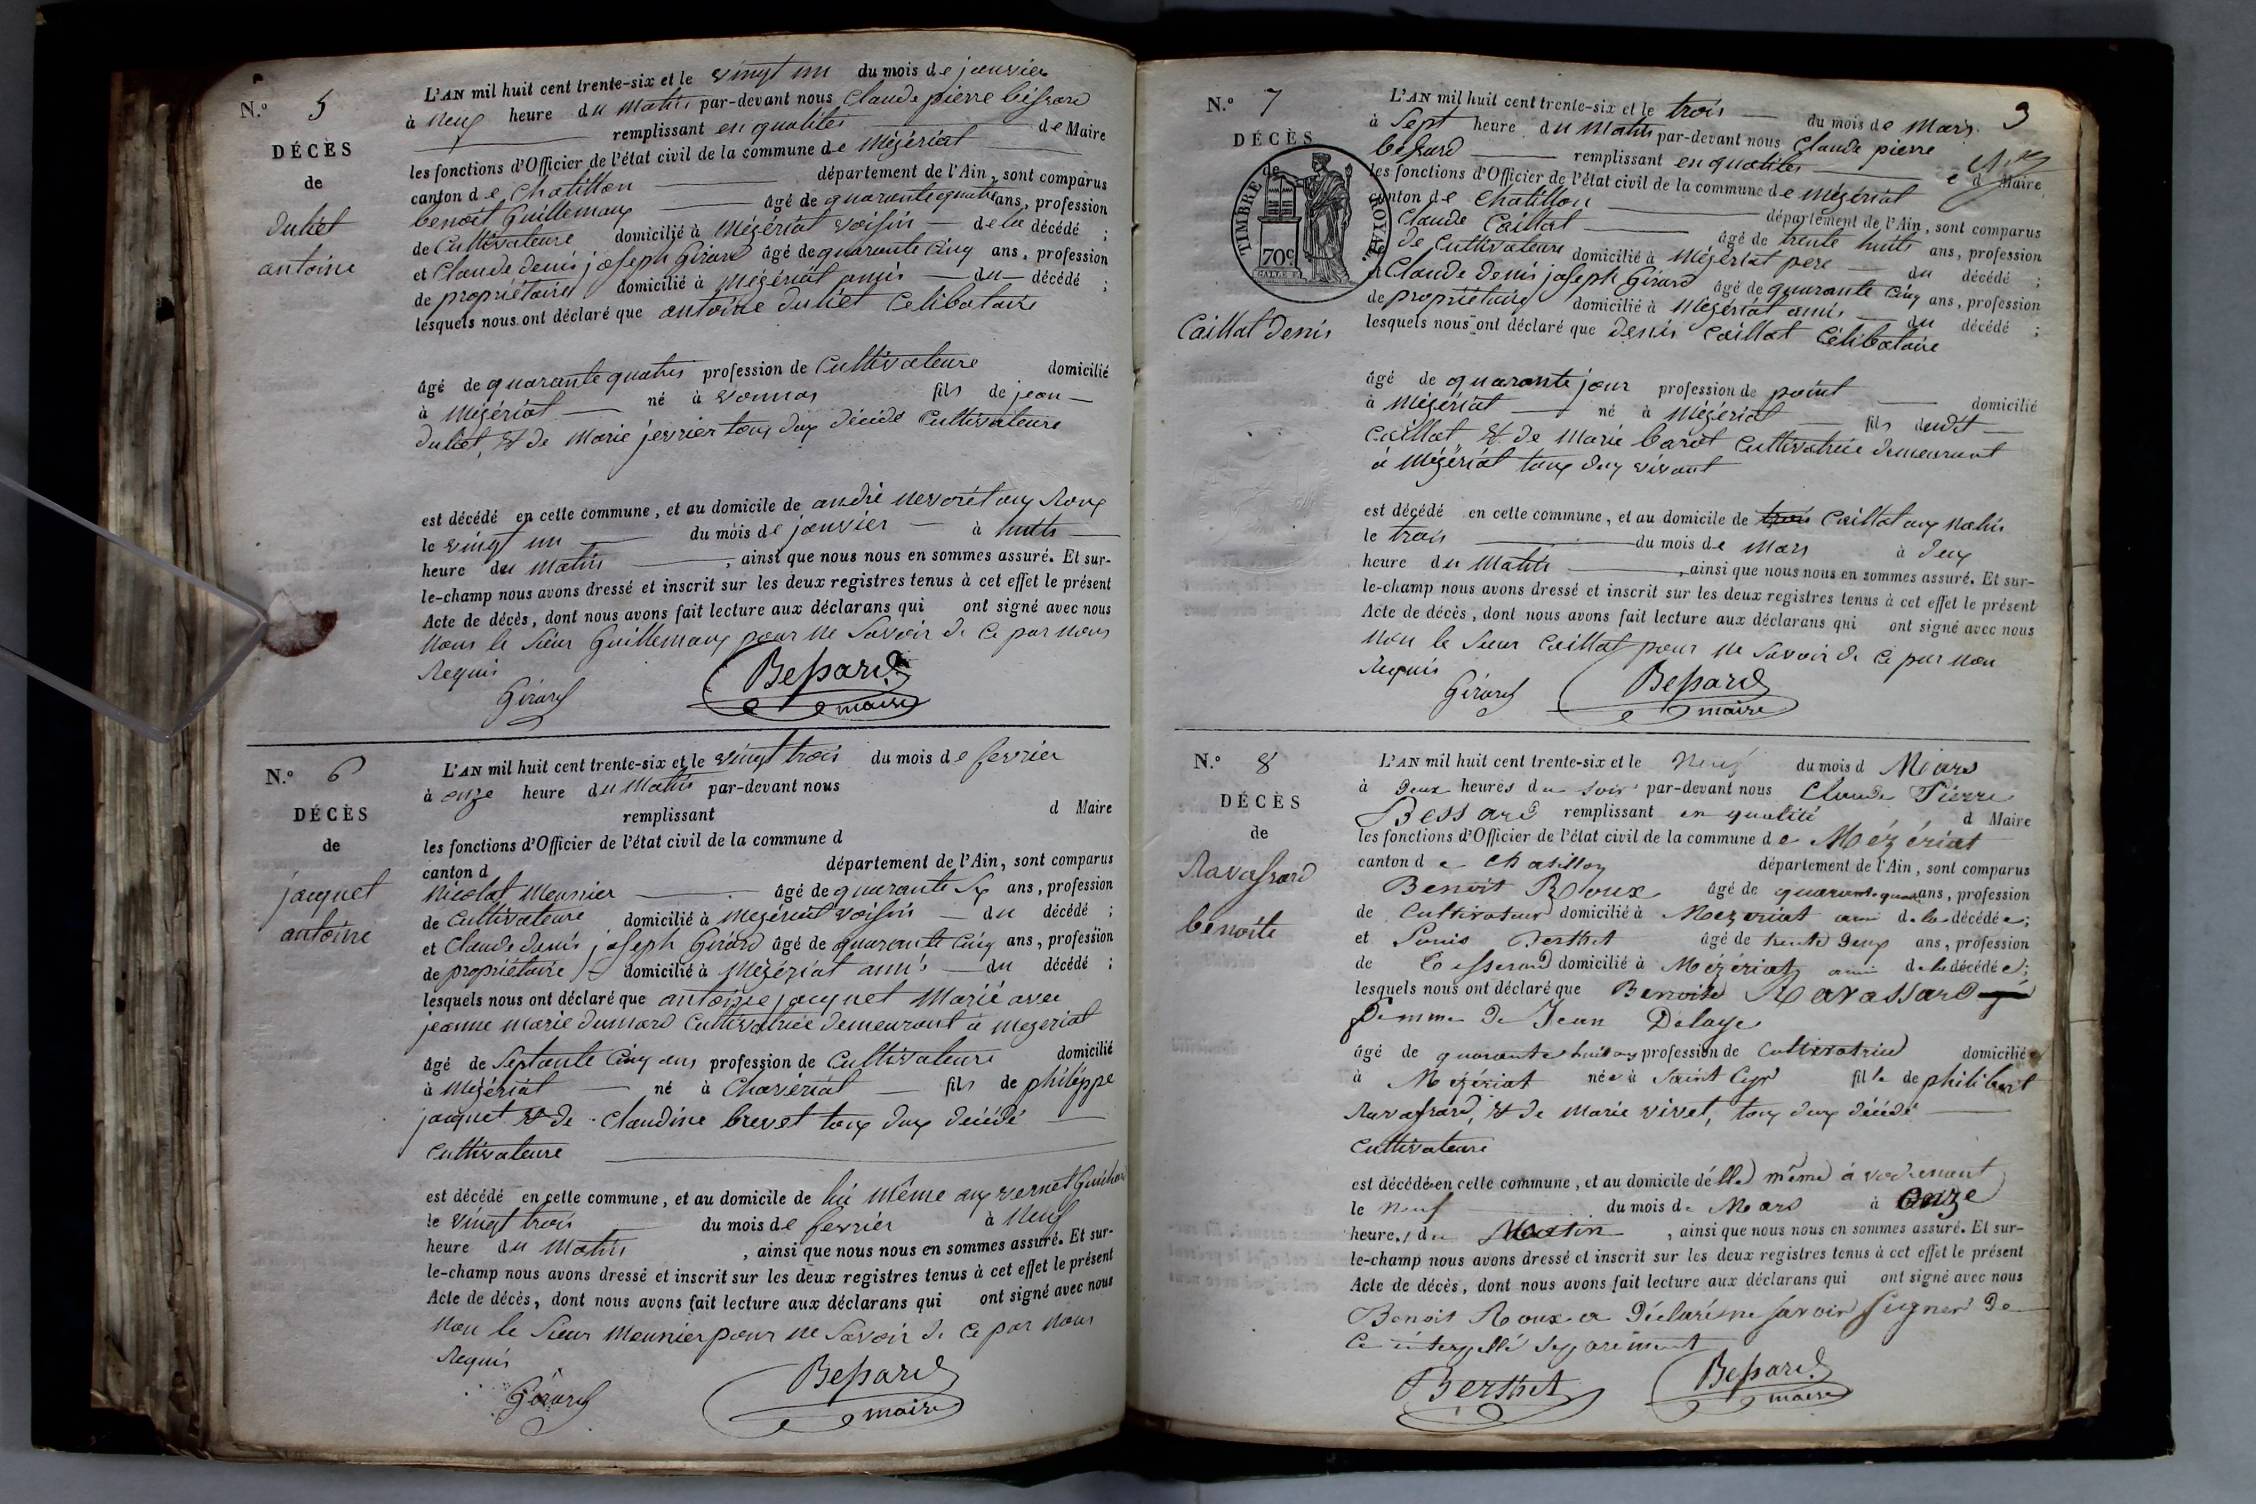 N.º 5
DÉCÈS
de
duliet
antoine
L'AN mil huit cent trente-six et le vingt un du mois de janvier
à neuf heure du matin par-devant nous Claude pierre béssard
remplissant en qualités de Maire
les fonctions d'Officier de l'état civil de la commune de Mézériat
canton de Chatillon département de l'Ain, sont comparus
benoit Guillemaux âgé de quarante quatre ans, profession
de Cultivateure domicilié à Mézériat voisin de la décédé ;
et Claude denis joseph Girard âgé de quarante cinq ans, profession
de propriétaire domicilié à Mézériat amis du décédé ;
lesquels nous ont déclaré que antoine duliet Celibataire
âgé de quarante quatre profession de Cultivateure domicilié
à Mézériat né à vonnas fils de jean
duliet, & de Marie jevrier toux dux décédé Cultivateure
est décédé en cette commune, et au domicile de andré nevorét aux Roux
le vingt un du mois de janvier à huits
heure du Matin, ainsi que nous nous en sommes assuré. Et sur-
le-champ nous avons dressé et inscrit sur les deux registres tenus à cet effet le présent
Acte de décès, dont nous avons fait lecture aux déclarans qui ont signé avec nous
Nous le Sieur Guillemaux pour ne Savoir de Ce par nous
Requis
Girard Bessard
maire
N.º 6
DÉCÈS
de
jacquet
antoine
L'AN mil huit cent trente-six et le vingt trois du mois de fevrier
à onze heure du Matin par-devant nous
remplissant d Maire
les fonctions d'Officier de l'état civil de la commune d
canton d département de l'Ain, sont comparus
Nicolat Meunier âgé de quarante Six ans, profession
de Cultivateure domicilié à Mézériat voisin du décédé ;
et Claude denis joseph Girard âgé de quarante cinq ans, profession
de propriétaire domicilié à Mézériat amis du décédé ;
lesquels nous ont déclaré que antoine jacquet Marié avec
jeanne marie dumard Cultivatrice demeurant à Mezeriat
âgé de Septante Cinq ans profession de Cultivateure domicilié
à Mézériat né à Chaveriat fils de philippe
jacquet & de Claudine brevet toux dux décédé
Cultivateure
est décédé en cette commune, et au domicile de lui même aux vernet
le vingt trois du mois de fevrier à neuf
heure du Matin, ainsi que nous nous en sommes assuré. Et sur-
le-champ nous avons dressé et inscrit sur les deux registres tenus à cet effet le présent
Acte de décès, dont nous avons fait lecture aux déclarans qui ont signé avec nous
Non le Sieur Meunier pour ne Savoir de Ce par nous
Requis
Girard Bessard
maire
3
N.º 7
DÉCÈS
de
TIMBRE ROYAL
70c
Caillat Denis
L'AN mil huit cent trente-six et le trois du mois de Mars
à Sept heure du Matin par-devant nous Claude pierre
béssard remplissant en qualités e d Maire
les fonctions d'Officier de l'état civil de la commune de Mézériat
canton de Chatillon département de l'Ain, sont comparus
Claude Caillat âgé de trente huits ans, profession
de Cultivateure domicilié à Mézériat pere du décédé ;
et Claude Denis joseph Girard âgé de quarante cinq ans, profession
de propriétaire domicilié à Mézériat amis du décédé ;
lesquels nous ont déclaré que Denis Caillat Célibataire
âgé de quarante jour profession de point domicilié
à Mézériat né à Mézériat fils dudit
Caillat, & de Marie barét Cultivatrice demeurant
à Mézériat toux dux vivant
est décédé en cette commune, et au domicile de Caillat aux
le trois du mois de Mars à deux
heure du Matin, ainsi que nous nous en sommes assuré. Et sur-
le-champ nous avons dressé et inscrit sur les deux registres tenus à cet effet le présent
Acte de décès, dont nous avons fait lecture aux déclarans qui ont signé avec nous
Non le Sieur Caillat pour ne Savoir de Ce par nou
Requis
Girard Bessard
maire
N.º 8
DÉCÈS
de
Ravassard
benoite
L'AN mil huit cent trente-six et le Neuf du mois d Mars
à Deux heures du soir par-devant nous Claude Pierre
Bessard remplissant en qualité d Maire
les fonctions d'Officier de l'état civil de la commune de Mézériat
canton de Chatillon département de l'Ain, sont comparus
Benoit Roux âgé de quarante quatre ans, profession
de Cultivateur domicilié à Mezeriat ami de la décédée;
et Louis Berthet âgé de trente Deux ans, profession
de Tesserand domicilié à Mézériat ami de la décédée;
lesquels nous ont déclaré que Benoite Ravassard
femme de Jean Delaye
âgé de quarante huit ans profession de Cultivatrice domicilié
à Mezériat née à Saint Cyr fille de philibert
Ravassard, & de Marie vivet, toux dux décédé
Cultivateure
est décédée en cette commune, et au domicile d'elle même à
le Neuf du mois de Mars à Onze
heures du Matin, ainsi que nous nous en sommes assuré. Et sur-
le-champ nous avons dressé et inscrit sur les deux registres tenus à cet effet le présent
Acte de décès, dont nous avons fait lecture aux déclarans qui ont signé avec nous
Benoit Roux a Déclaré ne savoir signer De
Ce interpellé séparément
Berthet Bessard
maire